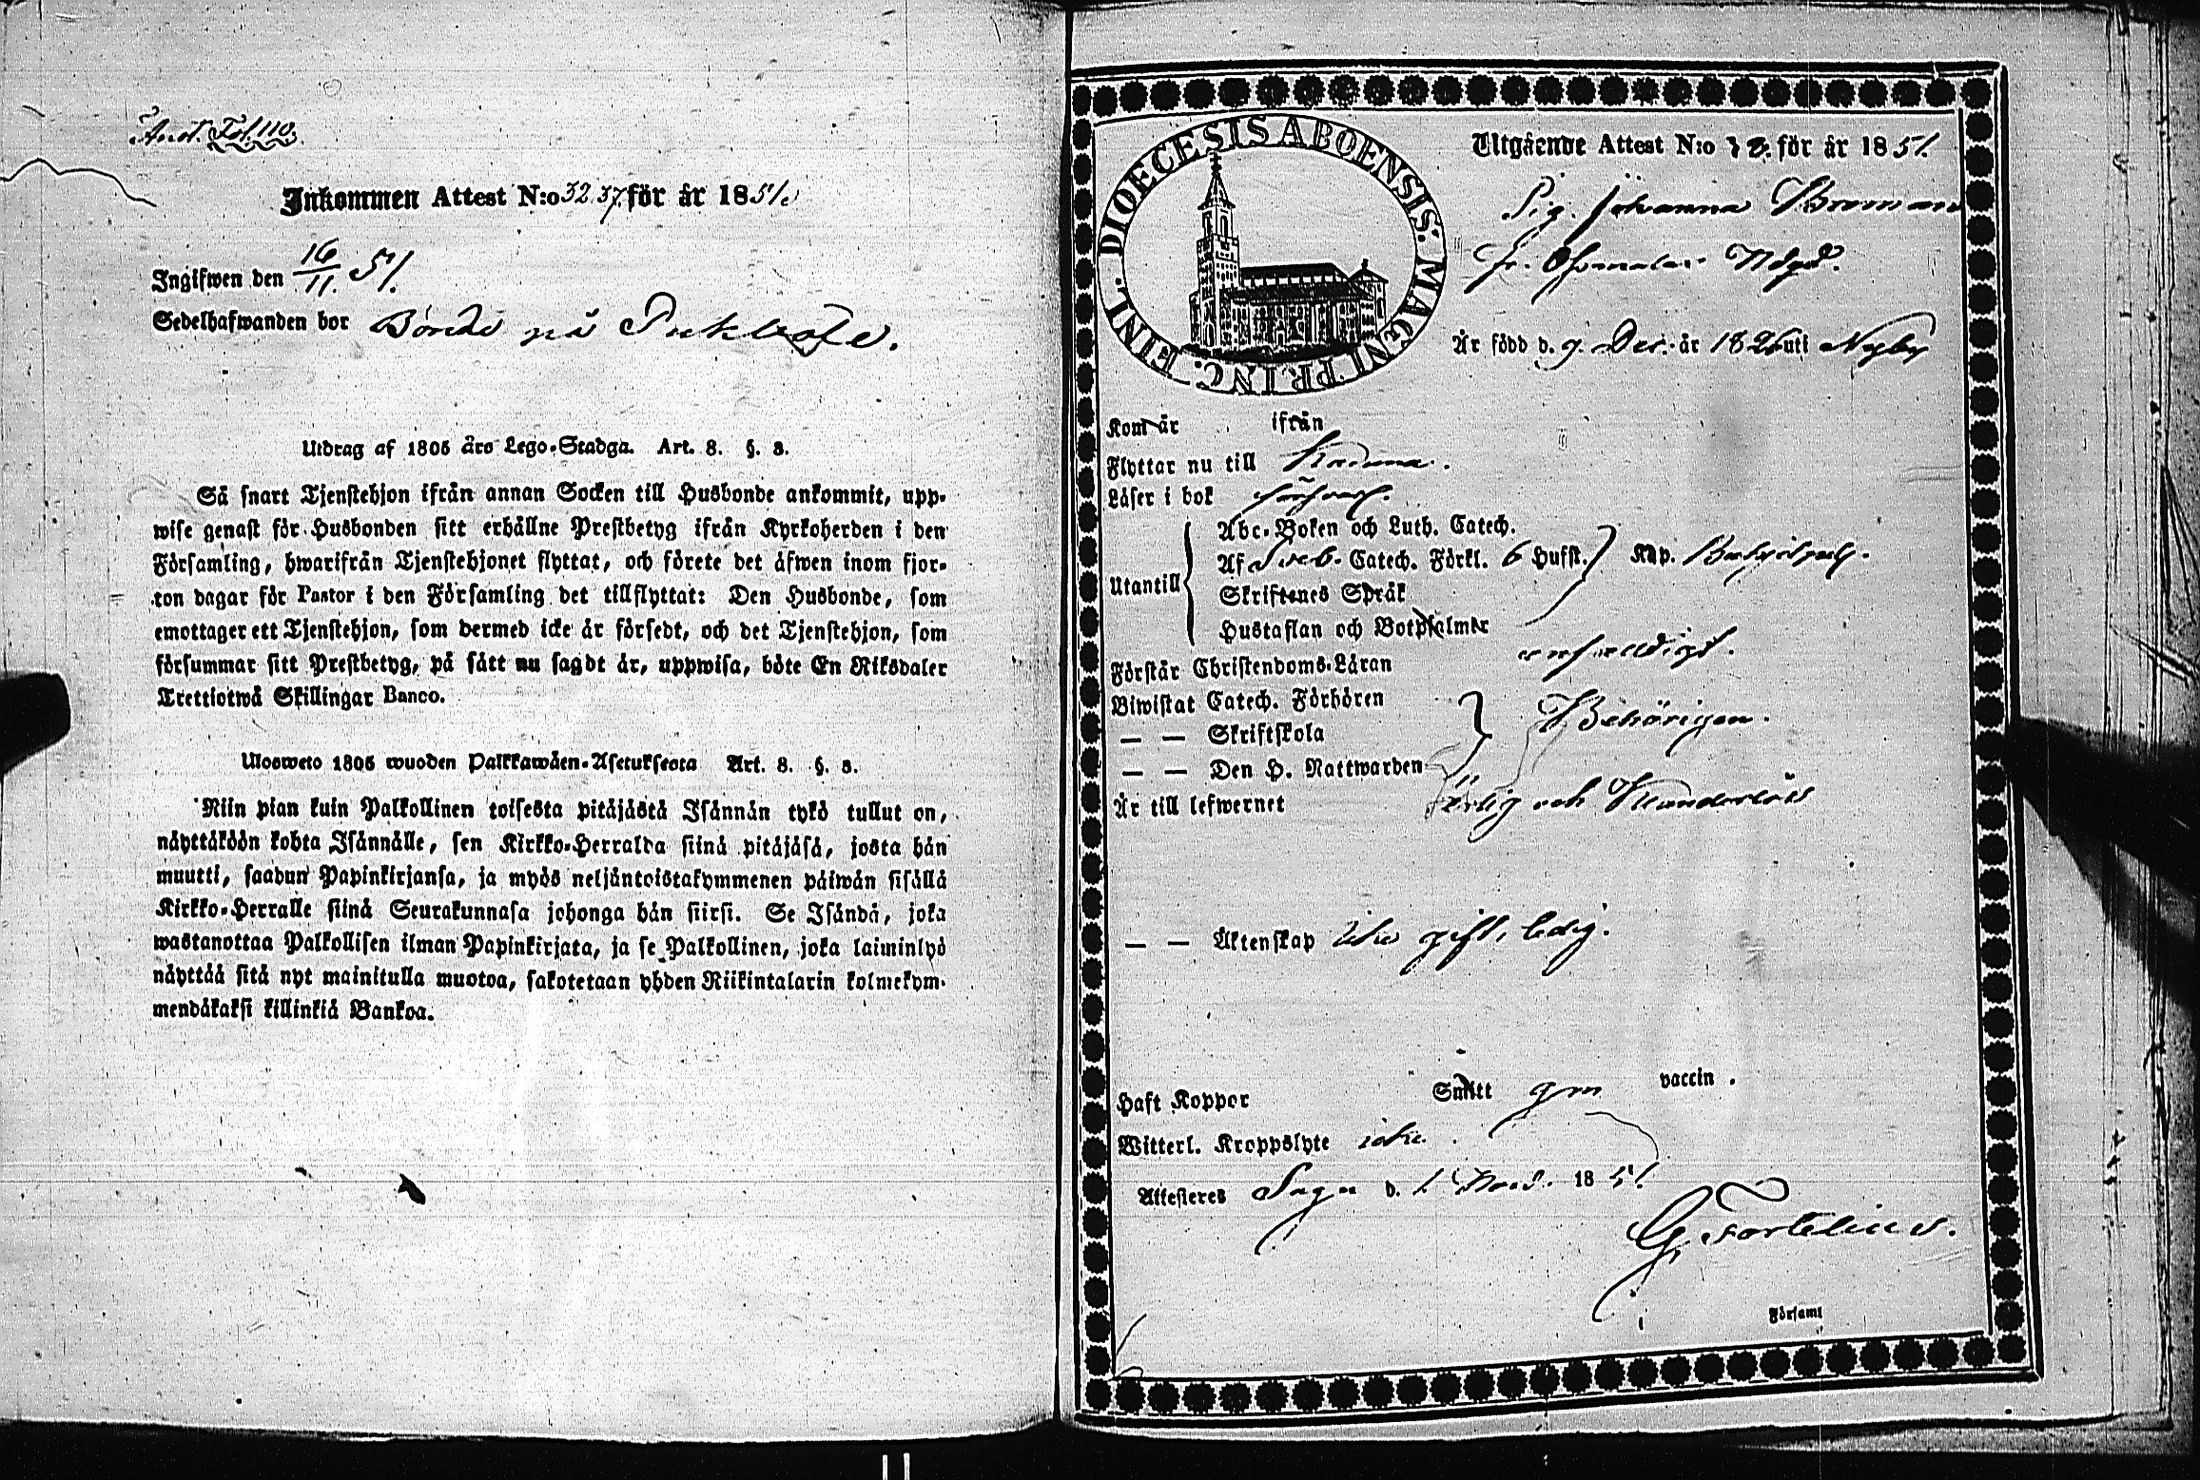 Anot. Fol. 110.
Inkommen Attest N:o 32. 37. för år 1851.
Ingifwen den 16/11. 51.
Sedelhafwanden bor Bonde på
Utdrag af 1805 års Lego-Stadga. Art. 8. §. 3.
Så snart Tjenstehjon ifrån annan Socken till Husbonde ankommit, upp-
wise genast för Husbonden sitt erhållne Prestbetyg ifrån Kyrkoherden i den
Församling, hwarifrån Tjenstehjonet flyttat, och förete det äfwen inom fjor-
ton dagar för Pastor i den Församling det tillflyttat: Den Husbonde, som
emottager ett Tjenstehjon, som dermed icke är försedt, och det Tjenstehjon, som
försummar sitt Prestbetyg, på sätt nu sagdt är, uppwisa, böte En Riksdaler
Trettiotwå Skillingar Banco.
Ulosweto 1805 wuoden Palkkawäen-Asetuksesta Art. 8. §. 3.
Niin pian kuin Palkollinen toisesta pitäjästä Isännän tykö tullut on,
näyttäköön kohta Isännälle, sen Kirkko-Herralda siinä pitäjäsä, josta hän
muutti, saadun Papinkirjansa, ja myös neljäntoistakymmenen päiwän sisällä
Kirkko-Herralle siinä Seurakunnasa johonga hän siirsi. Se Isändä, joka
wastanottaa Palkollisen ilman Papinkirjata, ja se Palkollinen, joka laiminlyö
näyttää sitä nyt mainitulla muotoa, sakotetaan yhden Riikintalarin kolmekym-
mendäkaksi killinkiä Bankoa.
DIOECESIS ABOENSIS. MAGNI PRINC. FINL.
Utgående Attest N:o för år 1851.
Pig. Johanna Broman
fr.
Är född d. 9. Dec. år 1826 uti Nyby
Kom år ifrån
Flyttar nu till
Läser i bok försvarl.
Utantill
Abc-Boken och Luth. Catech.
Af Sveb. Catech. Förkl. 6 Hufst. Kap.
Skriftenes Språk
Hustaflan och Botpsalmer
Förstår Christendoms-Läran enfaldigt.
Biwistat Catech. Förhören
— — Skriftskola Behörigen.
— — Den H. Nattwarden
Är till lefwernet Ärlig och Klanderlös
— — Äktenskap icke gift, ledig.
Haft Koppor Smitt gm vaccin.
Witterl. Kroppslyte icke.
Attesteres Sagu d. 1. Novb. 1851.
G. Fortelius.
Församl